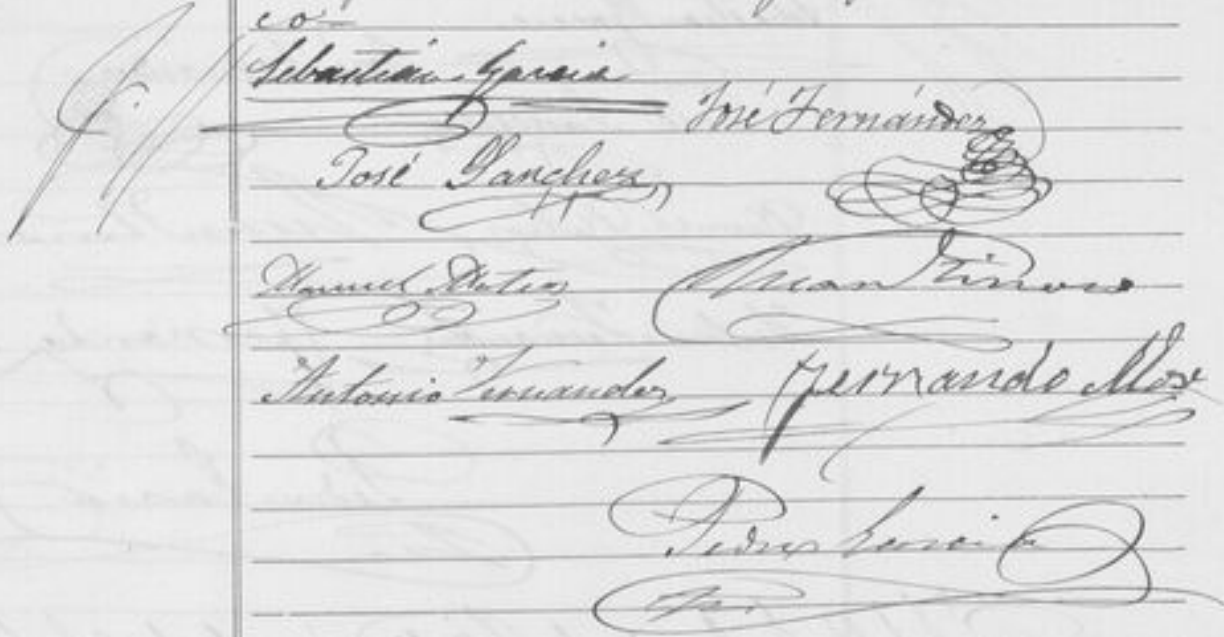 Sebastián García
José Fernández
José Sanchez
Manuel Mateo
Juan Tinoco
Antonio Fernandez
Fernando
Pedro García